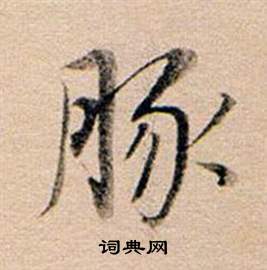 豚
词典网